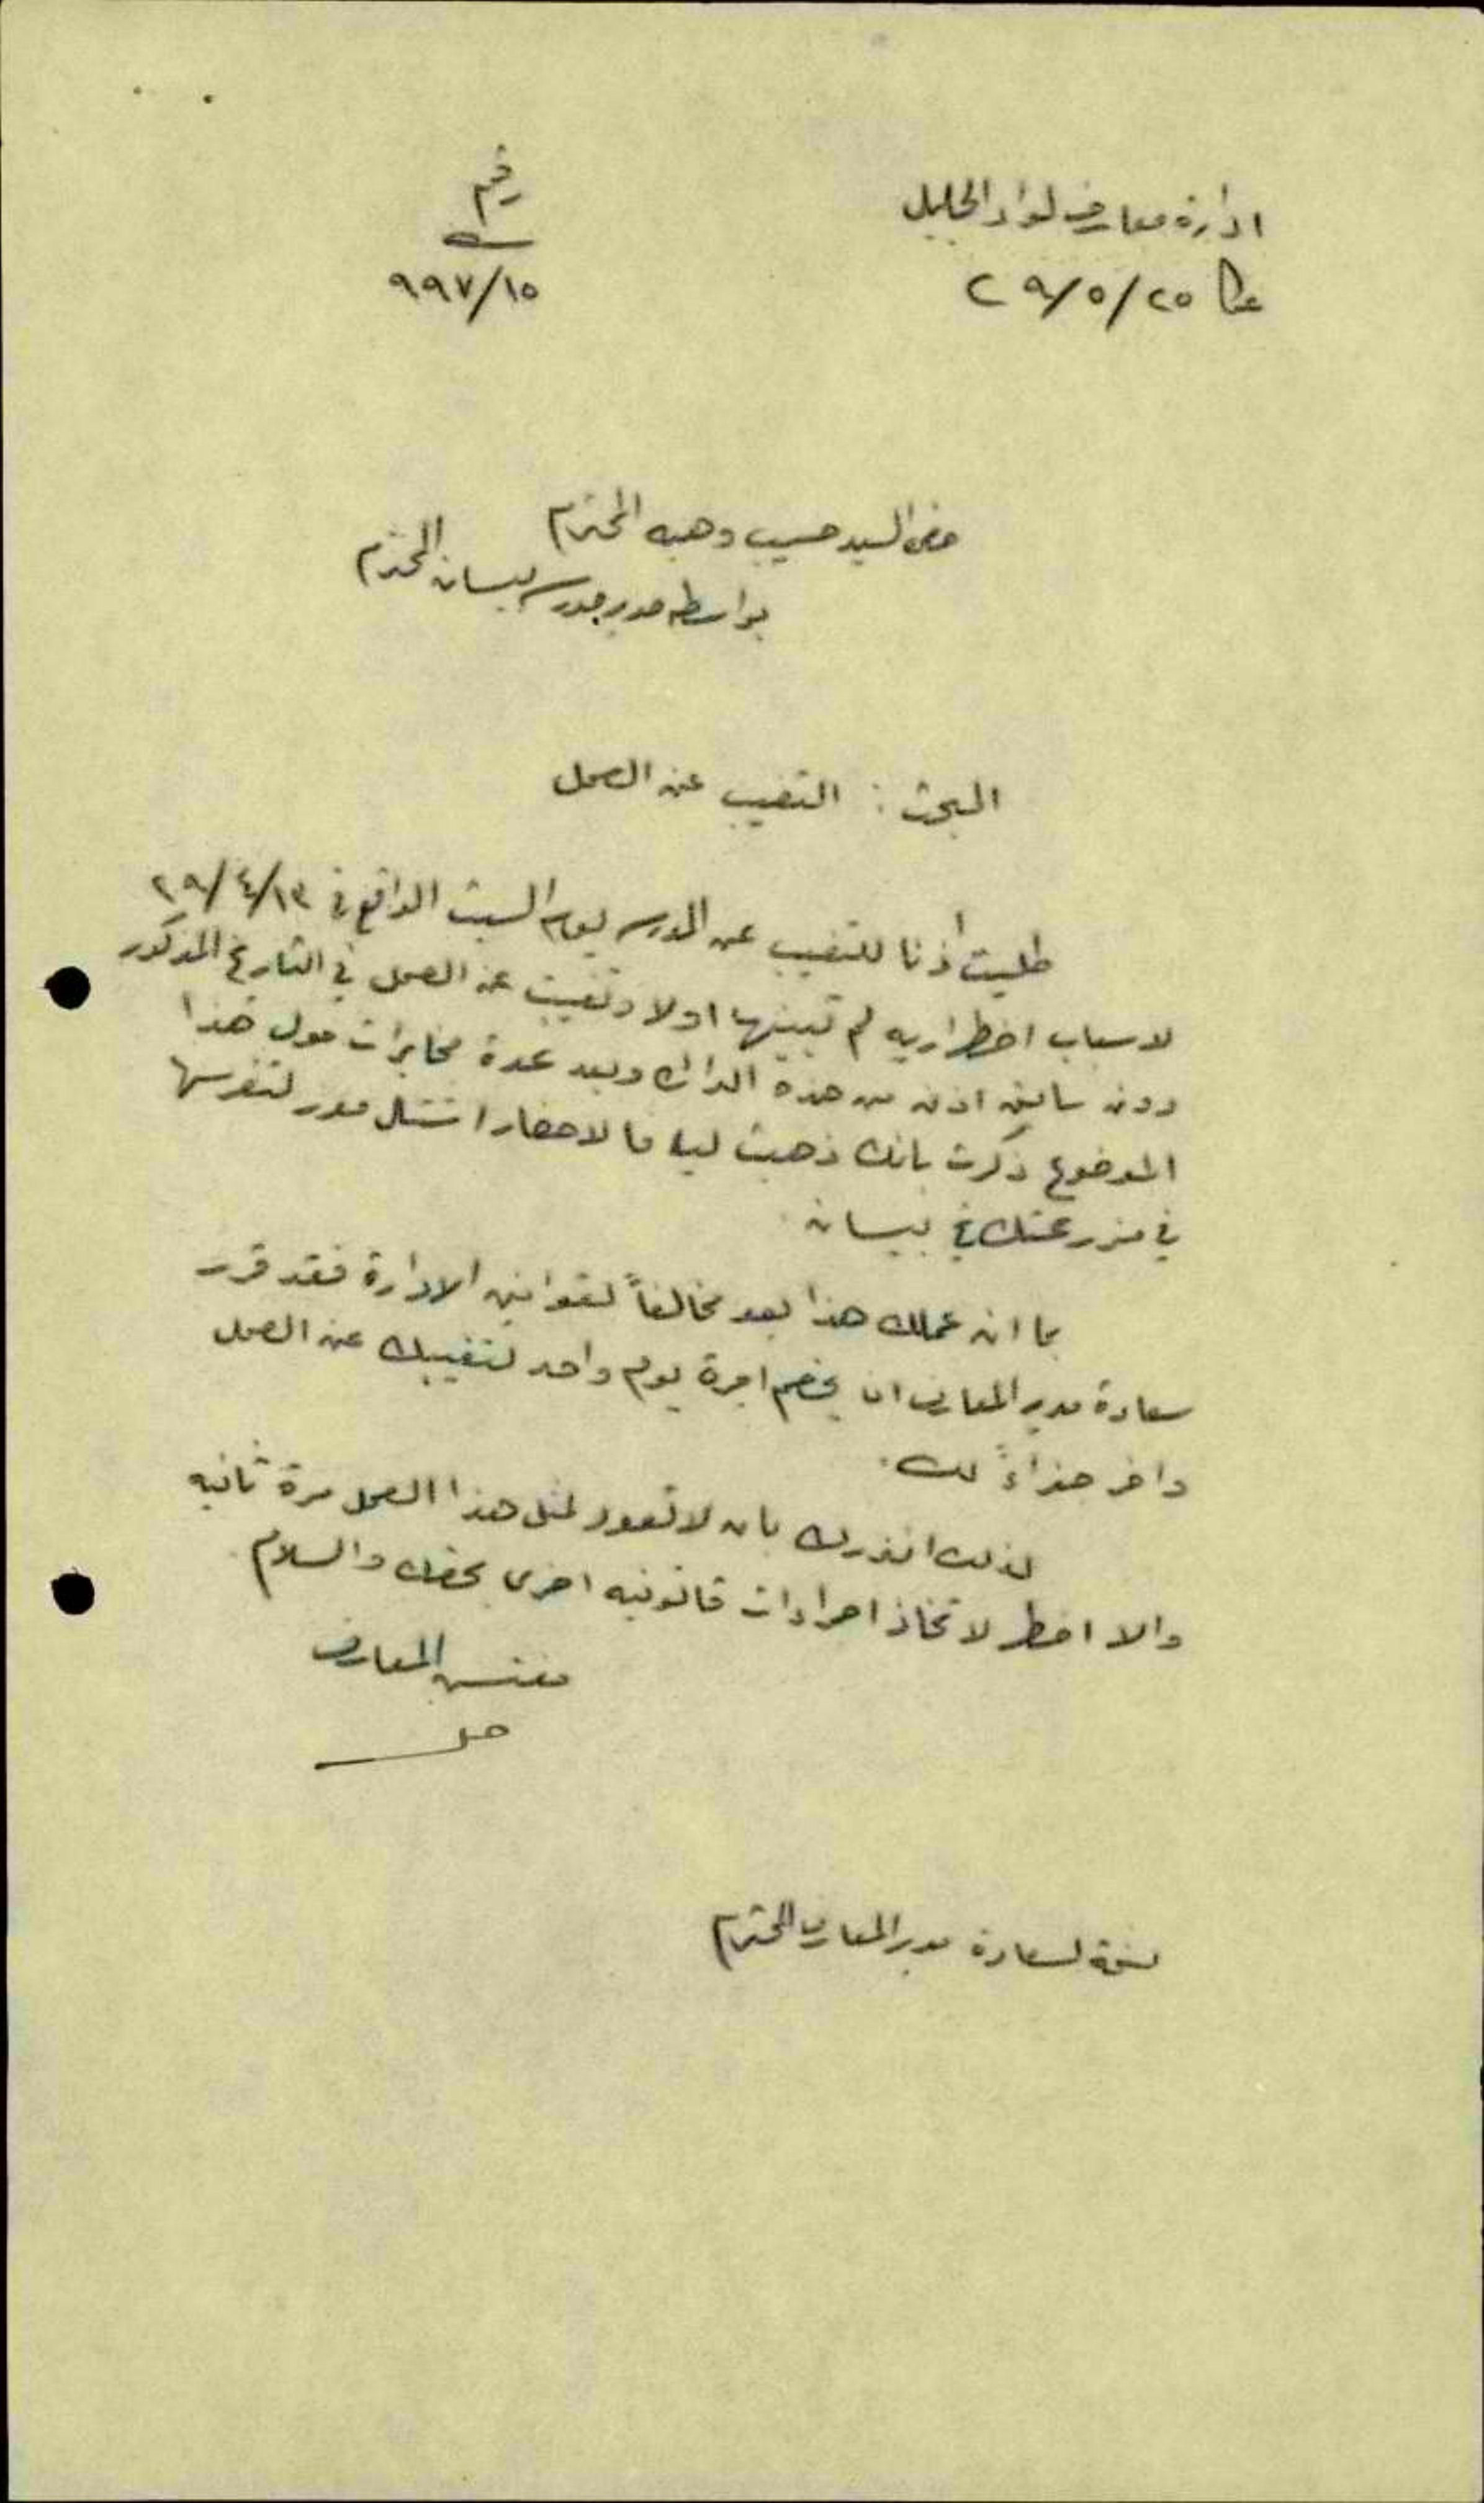 ادارة معارف لواء الجليل
عكا ٢٥/٥/٢٩
رقم
٩٩٧/١٥
حضرة السيد حسيب وهبه المحترم
بواسطة مدير مدرسة بيسان المحترم
البحث : التغيب عن العمل
طلبت أذنا للتغيب عن المدرسه يوم السبت الواقع في ١٣/٤/٢٩
لاسباب اضطراريه لم تبينها اولا وتغيبت عن العمل في التاريخ المذكور
دون سابق اذن من هذه الدائرة وبعد عدة مخابرات حول هذا
الموضوع ذكرت بانك ذهبت ليافا لاحضار اشتال موز لتغرسها
في مزرعتك في بيسان
بما ان عملك هذا يعد مخالفاً لقوانين الادارة فقد قرر
سعادة مدير المعارف ان يخصم اجرة يوم واحد لتغيبك عن العمل
واخر جزاءً لك.
لذلك انذرك بان لا تعود لمثل هذا العمل مرة ثانيه
والا اضطر لاتخاذ اجراءات قانونيه اخرى بحقك والسلام
مفتش المعارف
نسخة لسعادة مدير المعارف المحترم